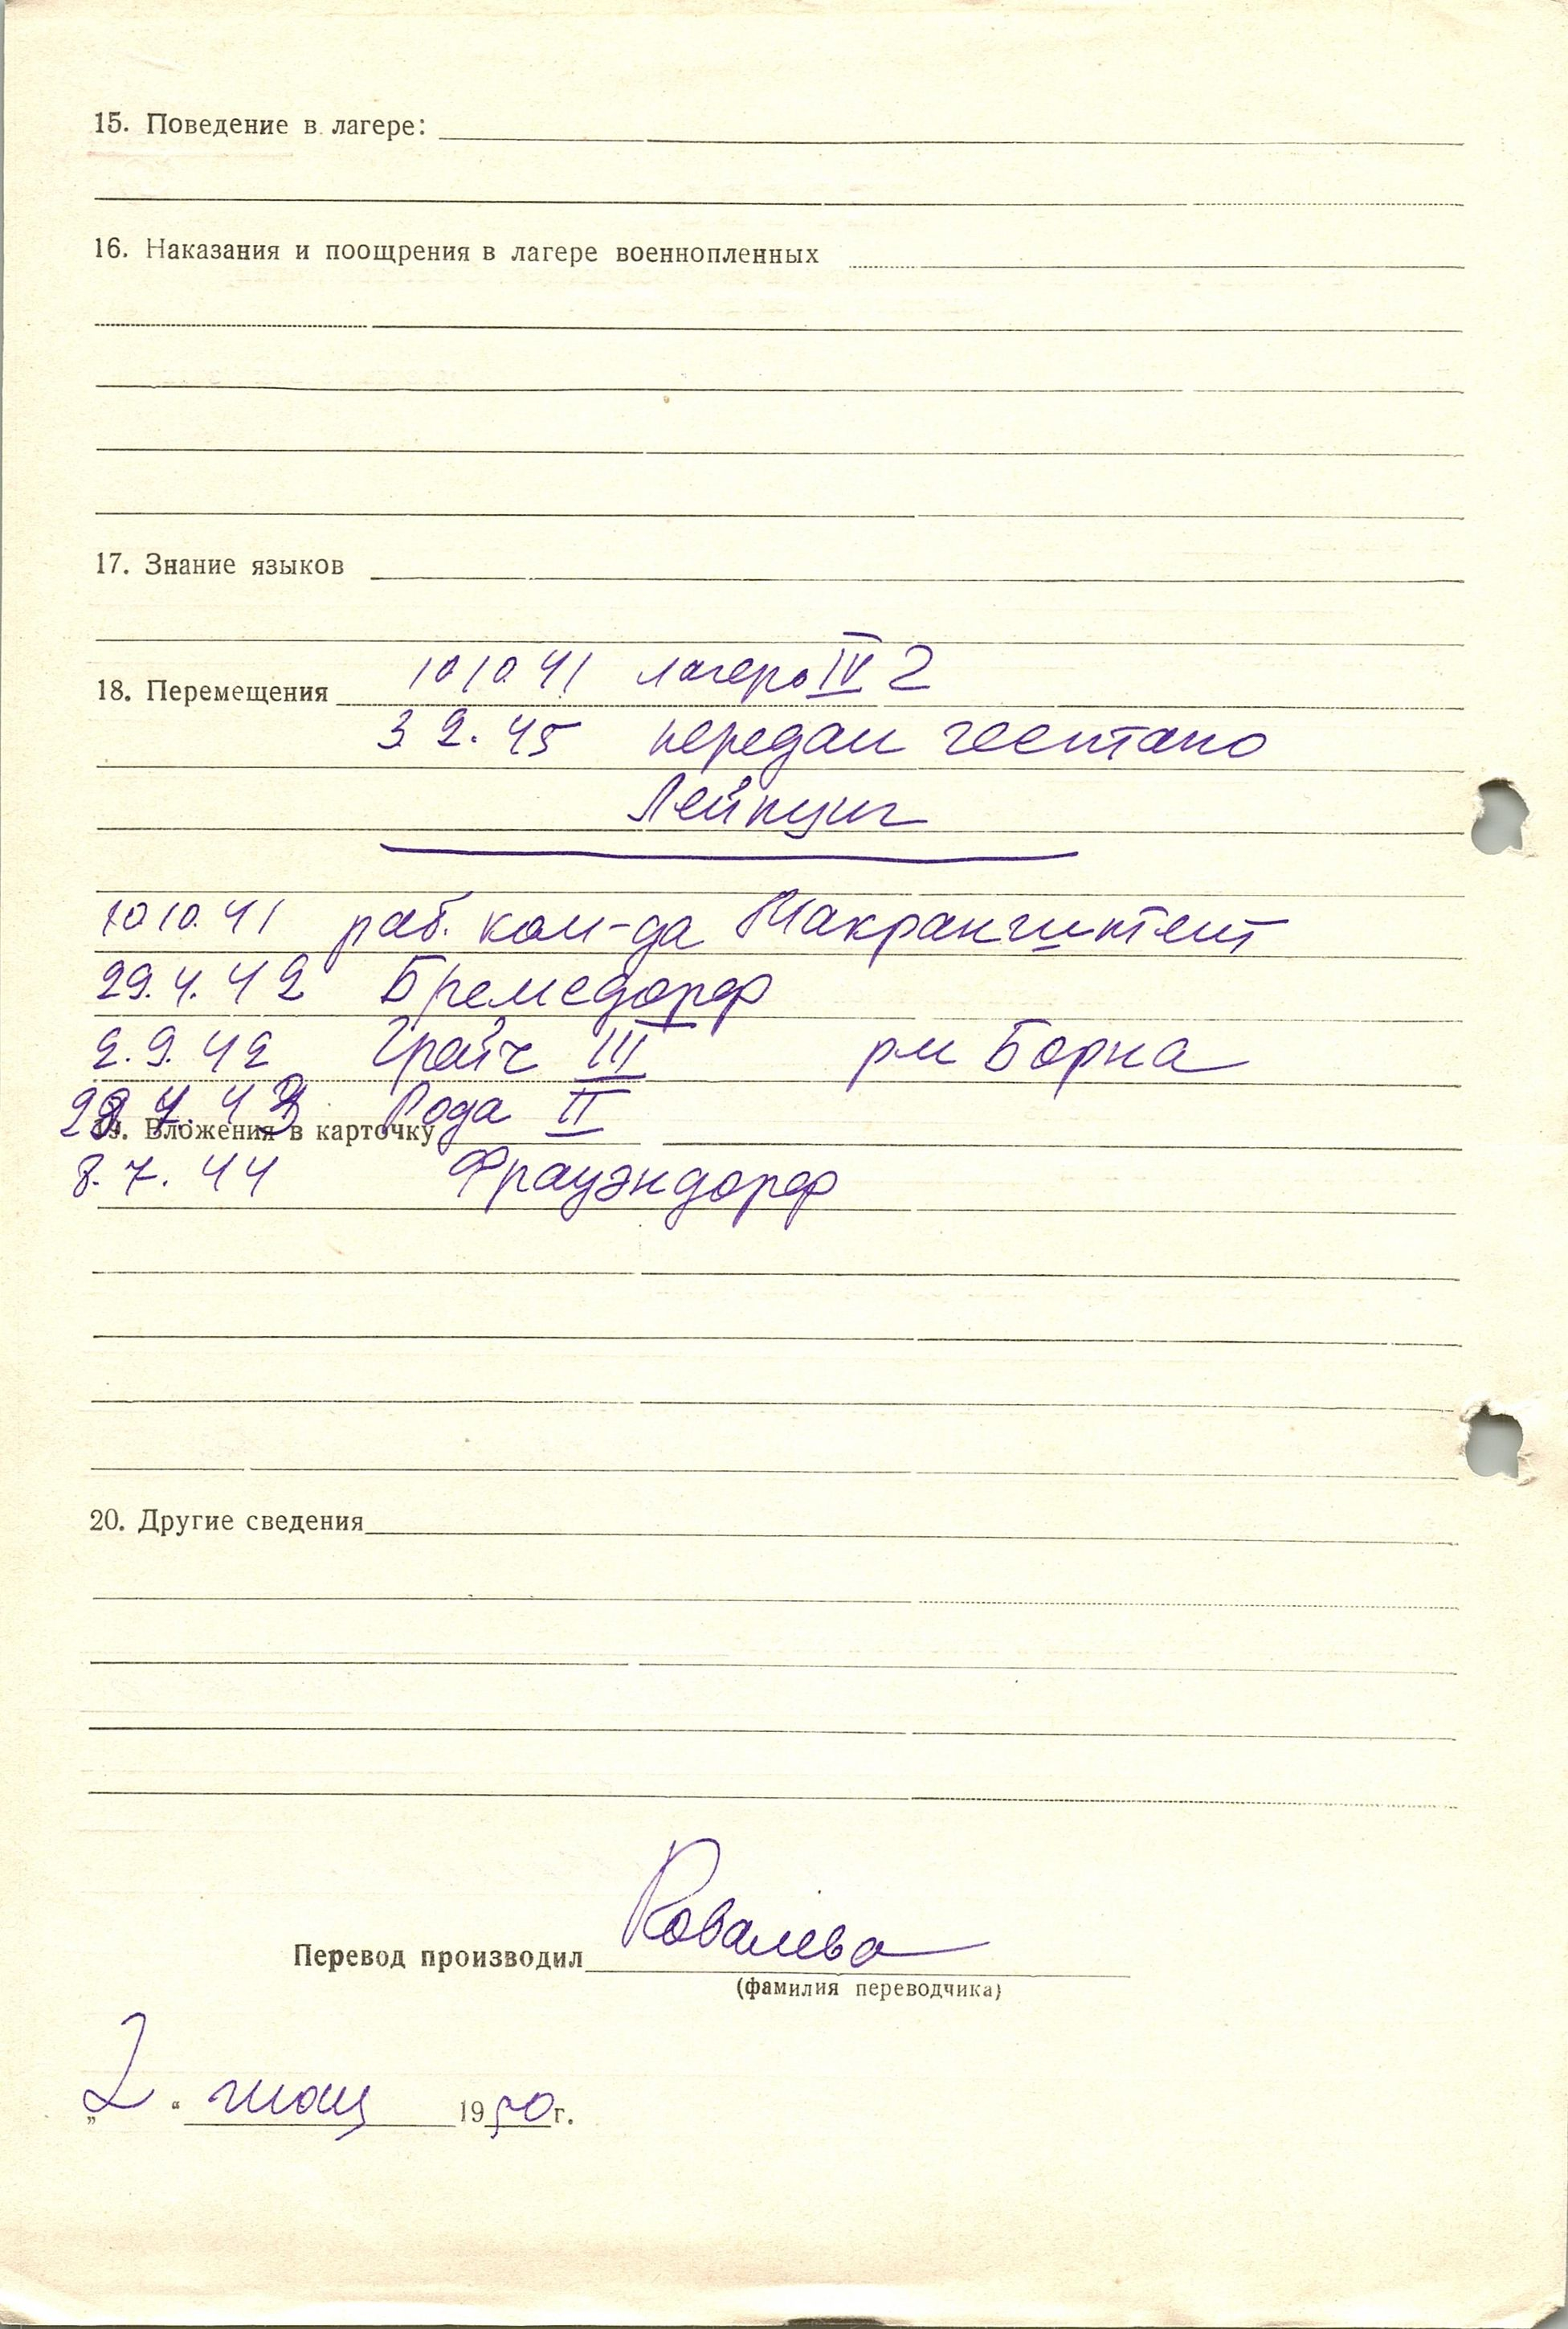 15. Поведение в лагере:
16. Наказания и поощрения в лагере военнопленных
17. Знание языков
18. Перемещения 10 10. 41 лагерь IV G
3 2. 45 передан гестапо
Лейпциг
10 10. 41 раб. ком-да
29. 4. 42 Бремсдорф
2. 9. 42 Грайч III рм Борна
7. 43 Рода II
19. Вложения в карточку
8. 7. 44 Фрауэндорф
20. Другие сведения
Перевод производил Ковалева
(фамилия переводчика)
„2“ 1950 г.